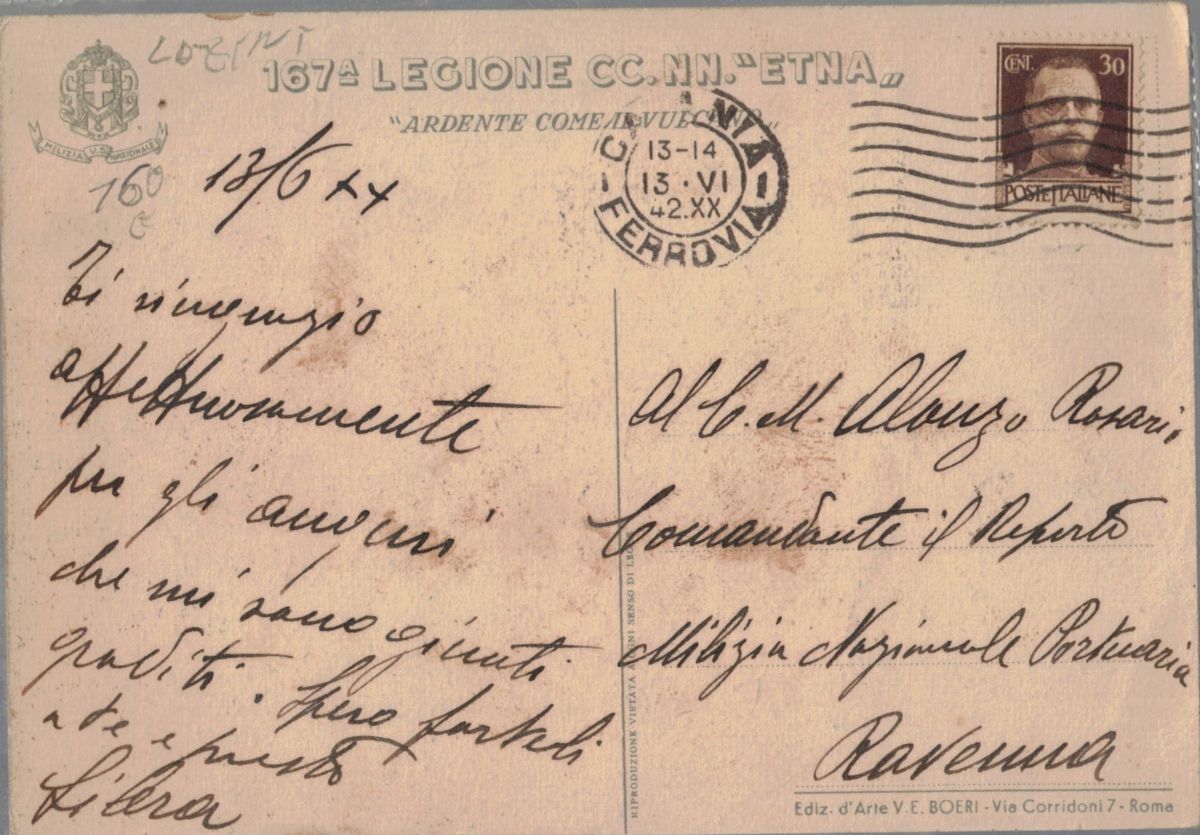 LOZINI
167ª LEGIONE CC.NN. "ETNA"
"ARDENTE COME IL VULCANO"
MILIZIA V.S. NAZIONALE
160
€
CENT. 30
POSTE ITALIANE
CATANIA
13-14
13·VI
42.XX
FERROVIA
13/6 XX
Ti ringrazio
affettuosamente
per gli auguri
che mi sono giunti
graditi. Spero farteli
a te e presto
Al C. M. Alonzo Rosario
Comandante il Reparto
Milizia Nazionale Portuaria
Ravenna
RIPRODUZIONE VIETATA AI SENSI DI LEGGE
Ediz. d'Arte V. E. BOERI - Via Corridoni 7 - Roma